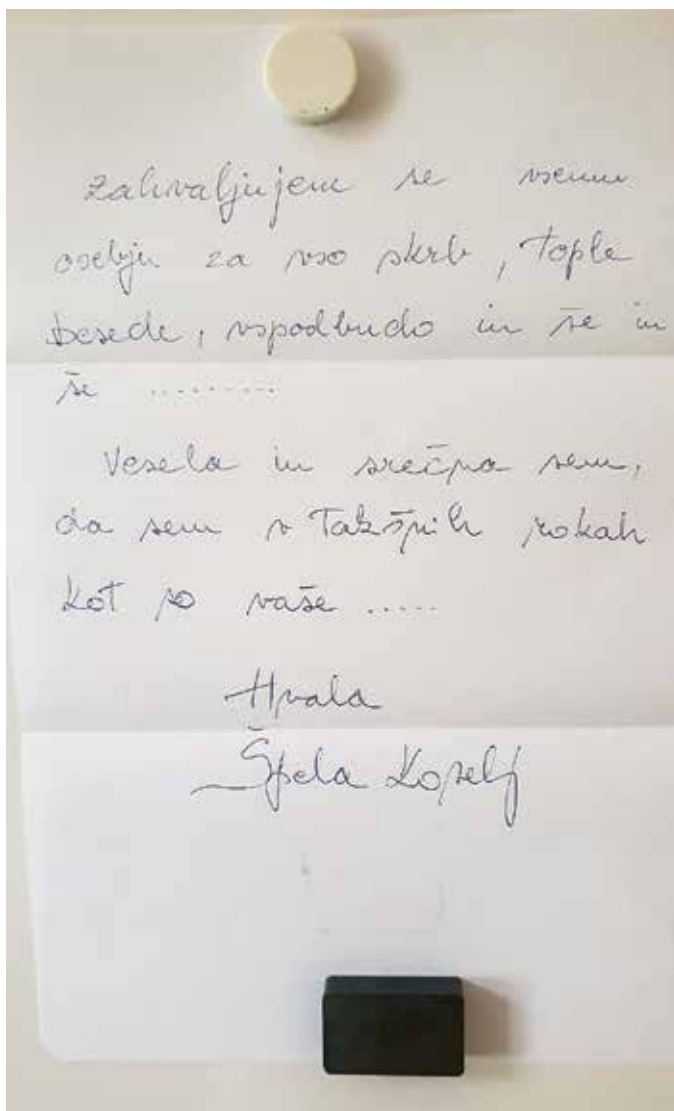 Zahvaljujem se vsemu
osebju za vso skrb, tople
besede, vspodbudo in še in
še .........
Vesela in srečna sem,
da sem v takšnih rokah
kot so vaše .....
Hvala
Špela Koselj